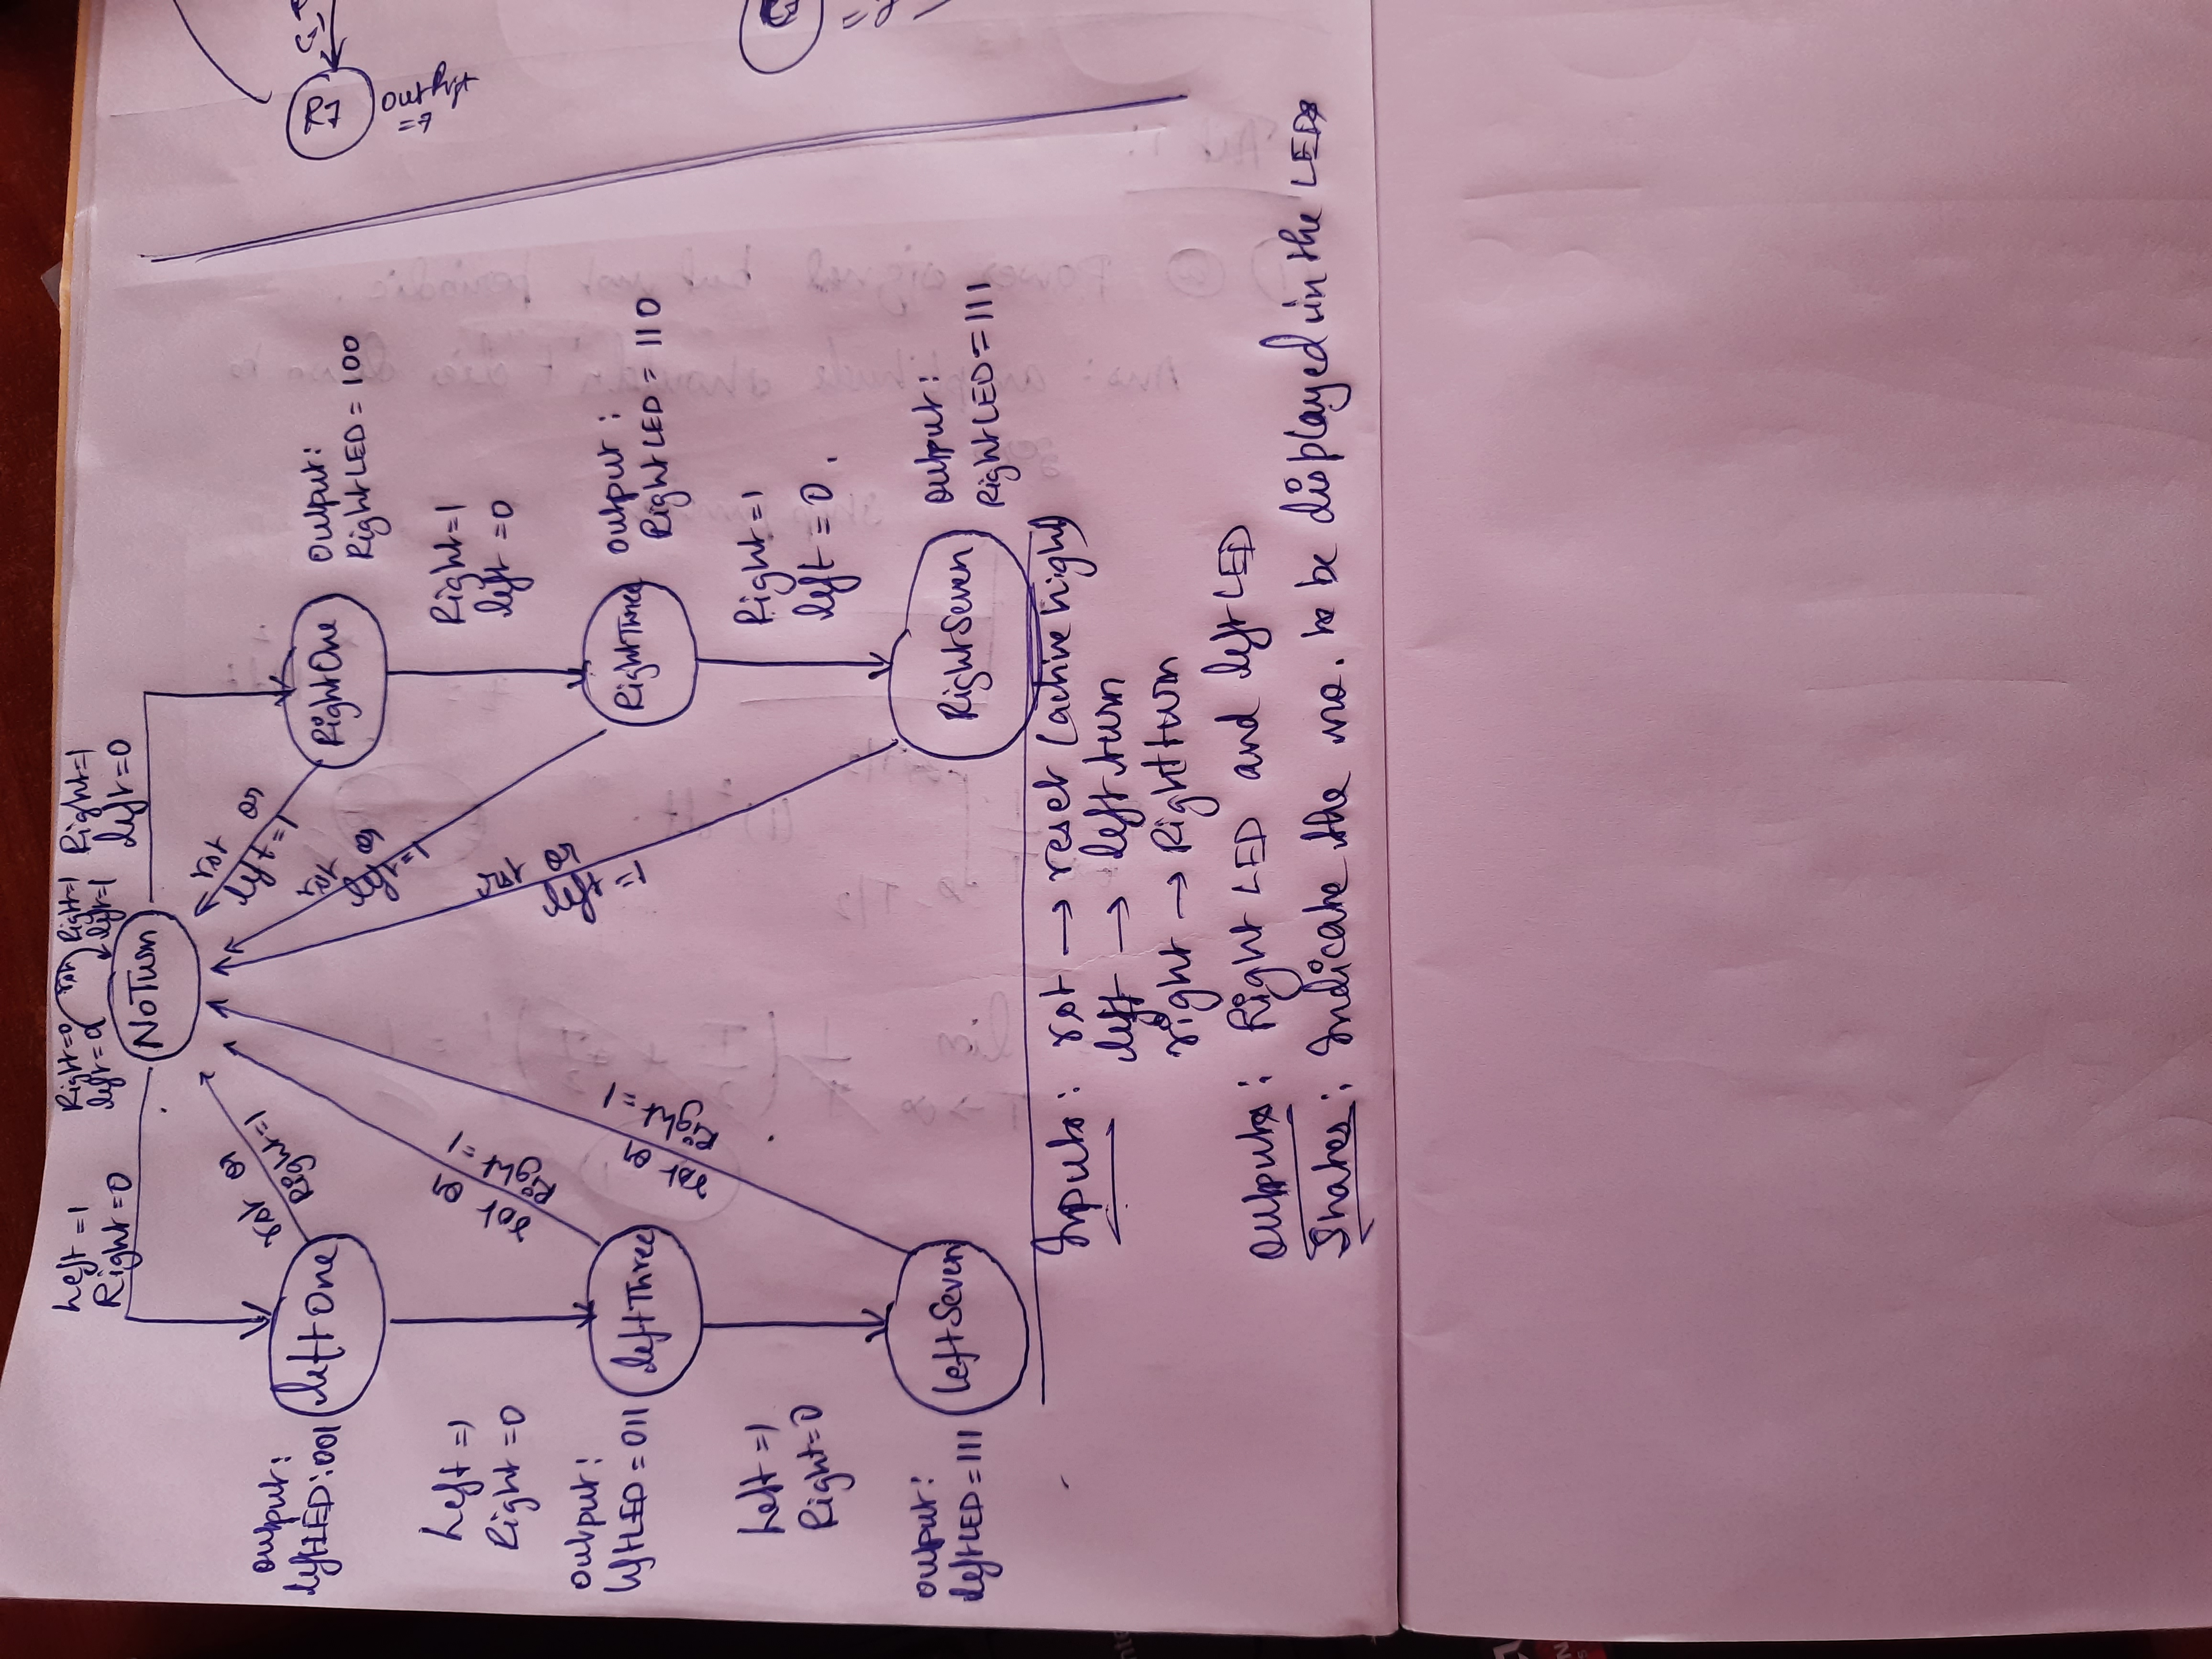 Left = 1
Right = 0
Right=0
left=0
rst
Right=1
left=1
Right=1
left=0
NoTurn
output:
leftLED:001
leftOne
rst or
Right=1
rst or
left=1
RightOne
Output:
RightLED = 100
Left =1
Right =0
rst or
Right=1
rst or
left=1
Right=1
left =0
output:
leftLED = 011
leftThree
rst or
Right=1
rst or
left=1
RightThree
output:
RightLED = 110
Left =1
Right=0
Right =1
left =0.
output:
leftLED=111
LeftSeven
RightSeven
output:
RightLED=111
Inputs: rst → reset (active high)
left → left turn
right → Right turn
outputs: Right LED and left LED
States: Indicate the no. to be displayed in the LEDs
R7
output
=7